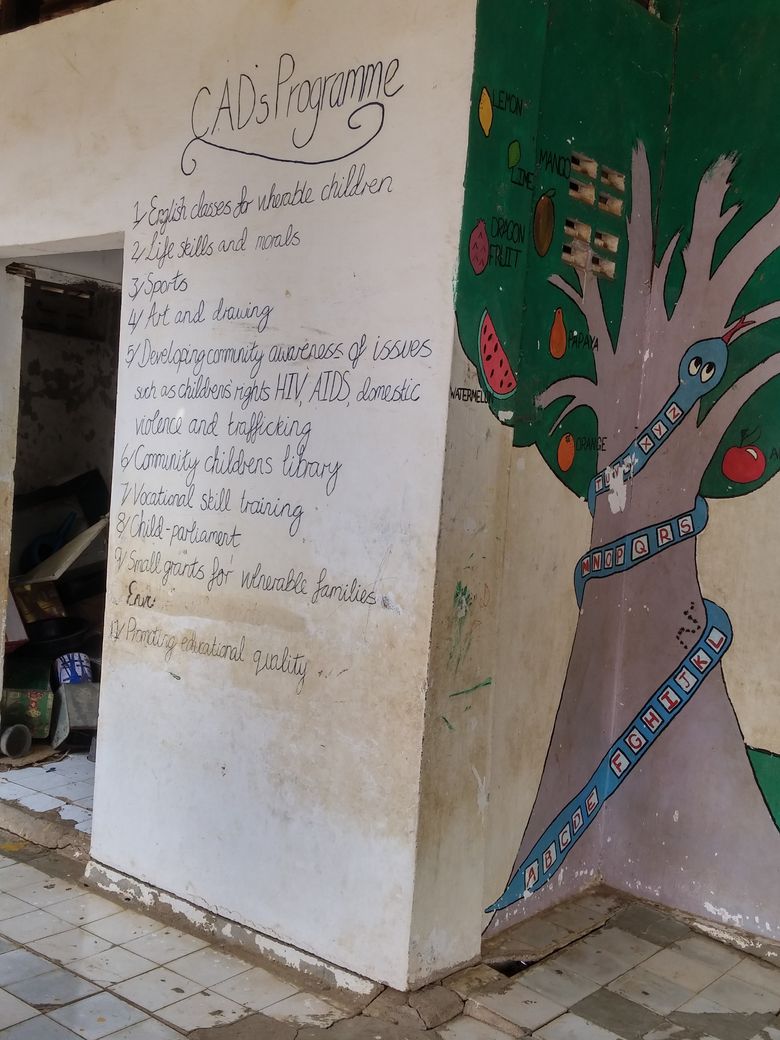 C.A.D's Programme
1/ English classes for vlnerable children
2/ Life skills and morals
3/ Sports
4/ Art and drawing
5/ Developing community awareness of issues
such as children's rights HIV, AIDS, domestic
violence and trafficking
6/ Community childrens library
7/ Vocational skill training
8/ Child-parliament
9/ Small grants for vulnerable families
Envr
11/ Promoting educational quality
LEMON
LIME
MANGO
DRAGON
FRUIT
PAPAYA
WATERMELON
ORANGE
A
X Y Z
M N O P Q R S
F G H I J K L
A B C D E